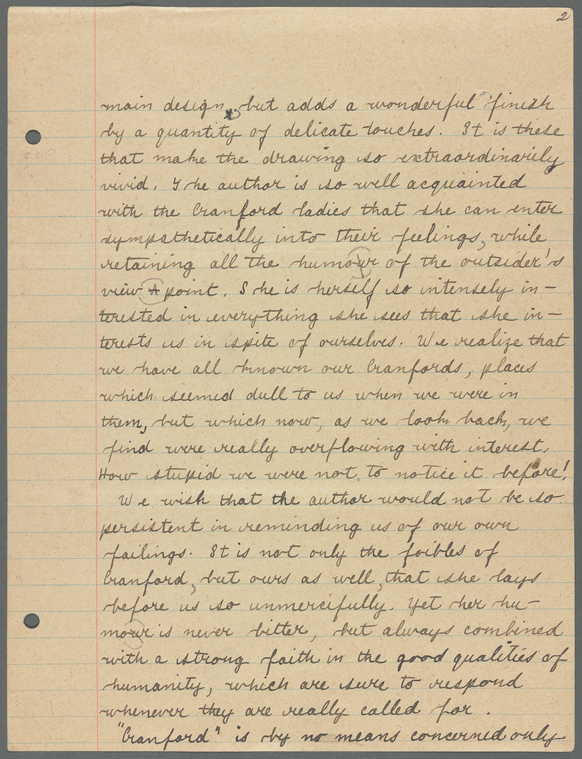 2
main design, but adds a wonderful finish
by a quantity of delicate touches. It is these
that make the drawing so extraordinarily
vivid. The author is so well acquainted
with the Cranford ladies that she can enter
sympathetically into their feelings, while
retaining all the humour of the outsider's
view point. She is herself so intensely in-
terested in everything she sees that she in-
terests us in spite of ourselves. We realize that
we have all known our Cranfords, places
which seemed dull to us when we were in
them, but which now, as we look back, we
find were really overflowing with interest.
How stupid we were not to notice it before!
We wish that the author would not be so
persistent in reminding us of our own
failings. It is not only the foibles of
Cranford, but ours as well, that she lays
before us so unmercifully. Yet her hu-
mour is never bitter, but always combined
with a strong faith in the good qualities of
humanity, which are sure to respond
whenever they are really called for.
"Cranford" is by no means concerned only